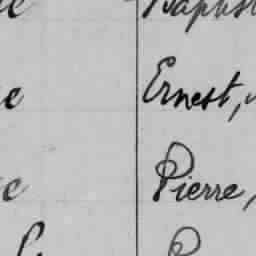 Baptist
e Ernest,
e Pierre,